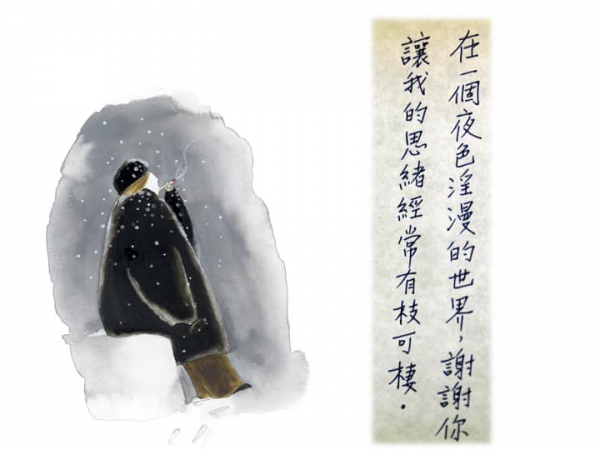 在一個夜色淫漫的世界，謝謝你
讓我的思緒經常有枝可棲．